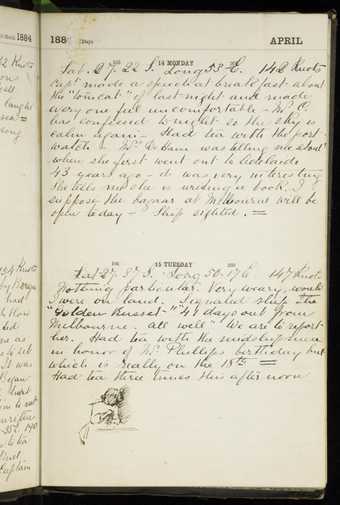 1884
188
Days
APRIL
14 MONDAY
Lat. 27.22 S. Long 53 E. 142 Knots
Capt made a speech at breakfast about
the "tomcat" of last night and made
everyone feel uncomfortable - Mr
has confessed to night so the sky is
calm again - Had tea with the port
watch - Mrs was telling me about
when she first went out to Adelaide
43 years ago - it was very interesting
She tells me she is writing a book. I
suppose the bazaar at Melbourne will be
open to day - Ship sighted. =
15 TUESDAY
Lat 27. 37 S. Long 50.17 E 147 Knots
Nothing particular. Very weary, would
I were on land. Signaled ship The
"Golden Russet" "41 days out from
Melbourne. all well" We are to report
her. Had tea with the midshipmen
in honor of Mr Phillips birthday but
which is really on the 18th =
Had tea three times this afternoon